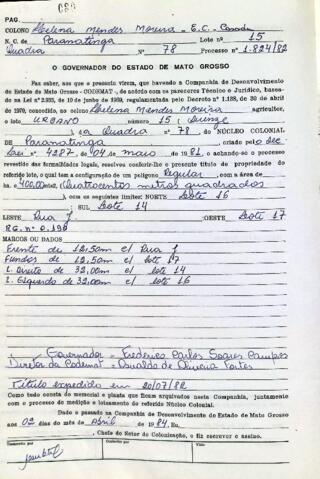 PAG. 089
COLONO Helena Mendes Moreira - E.C. Casada
N. C. de Paranatinga Lote nº 15
Quadra Nº 78 Processo nº 1.824/82
O GOVERNADOR DO ESTADO DE MATO GROSSO
Faz saber, aos que a presente virem, que havendo a Companhia de Desenvolvimento
do Estado de Mato Grosso - CODEMAT -, de acordo com os pareceres Técnico e Jurídico, baseados
na Lei nº 2.935, de 10 de junho de 1939, regulamentada pelo Decreto nº 1.138, de 30 de abril
de 1970, concedido, ao Helena Mendes Moreira agricultor,
o lote URBANO número 15 (quinze
) da Quadra nº 78, do NÚCLEO COLONIAL
DE Paranatinga criado pelo
Lei nº 4287, de 04 de maio de 1981, achando-se o processo
revestido das formalidades legais, resolveu conferir-lhe o presente título de propriedade do
referido lote, o qual tem a configuração de um polígono Regular, com a área de
ha. 400,00mts2, (Quatrocentos metros quadrados
), com os seguintes limites: NORTE Lote 16
SUL Lote 14
LESTE Rua J OESTE Lote 17
RG. Nº 0.190
MARCOS OU DADOS
Frente de 12,50m c/ Rua J
Fundos de 12,50m c/ lote 17
L. Direito de 32,00m c/ lote 14
L. Esquerdo de 32,00m c/ lote 16
Governador - Frederico Carlos Soares Campos
Diretor da Codemat - Osvaldo de Oliveira Fortes
Título expedido em 20/07/82
Como tudo consta do memorial e planta que ficam arquivados nesta Companhia, juntamente
com o processo de medição e loteamento do referido Núcleo Colonial.
Dado e passado na Companhia de Desenvolvimento do Estado de Mato Grosso
aos 02 dias do mês de abril de 1984, Eu,
, Chefe do Setor de Colonização, o fiz escrever e assino.
Datilografado por
Conferido por
Visto